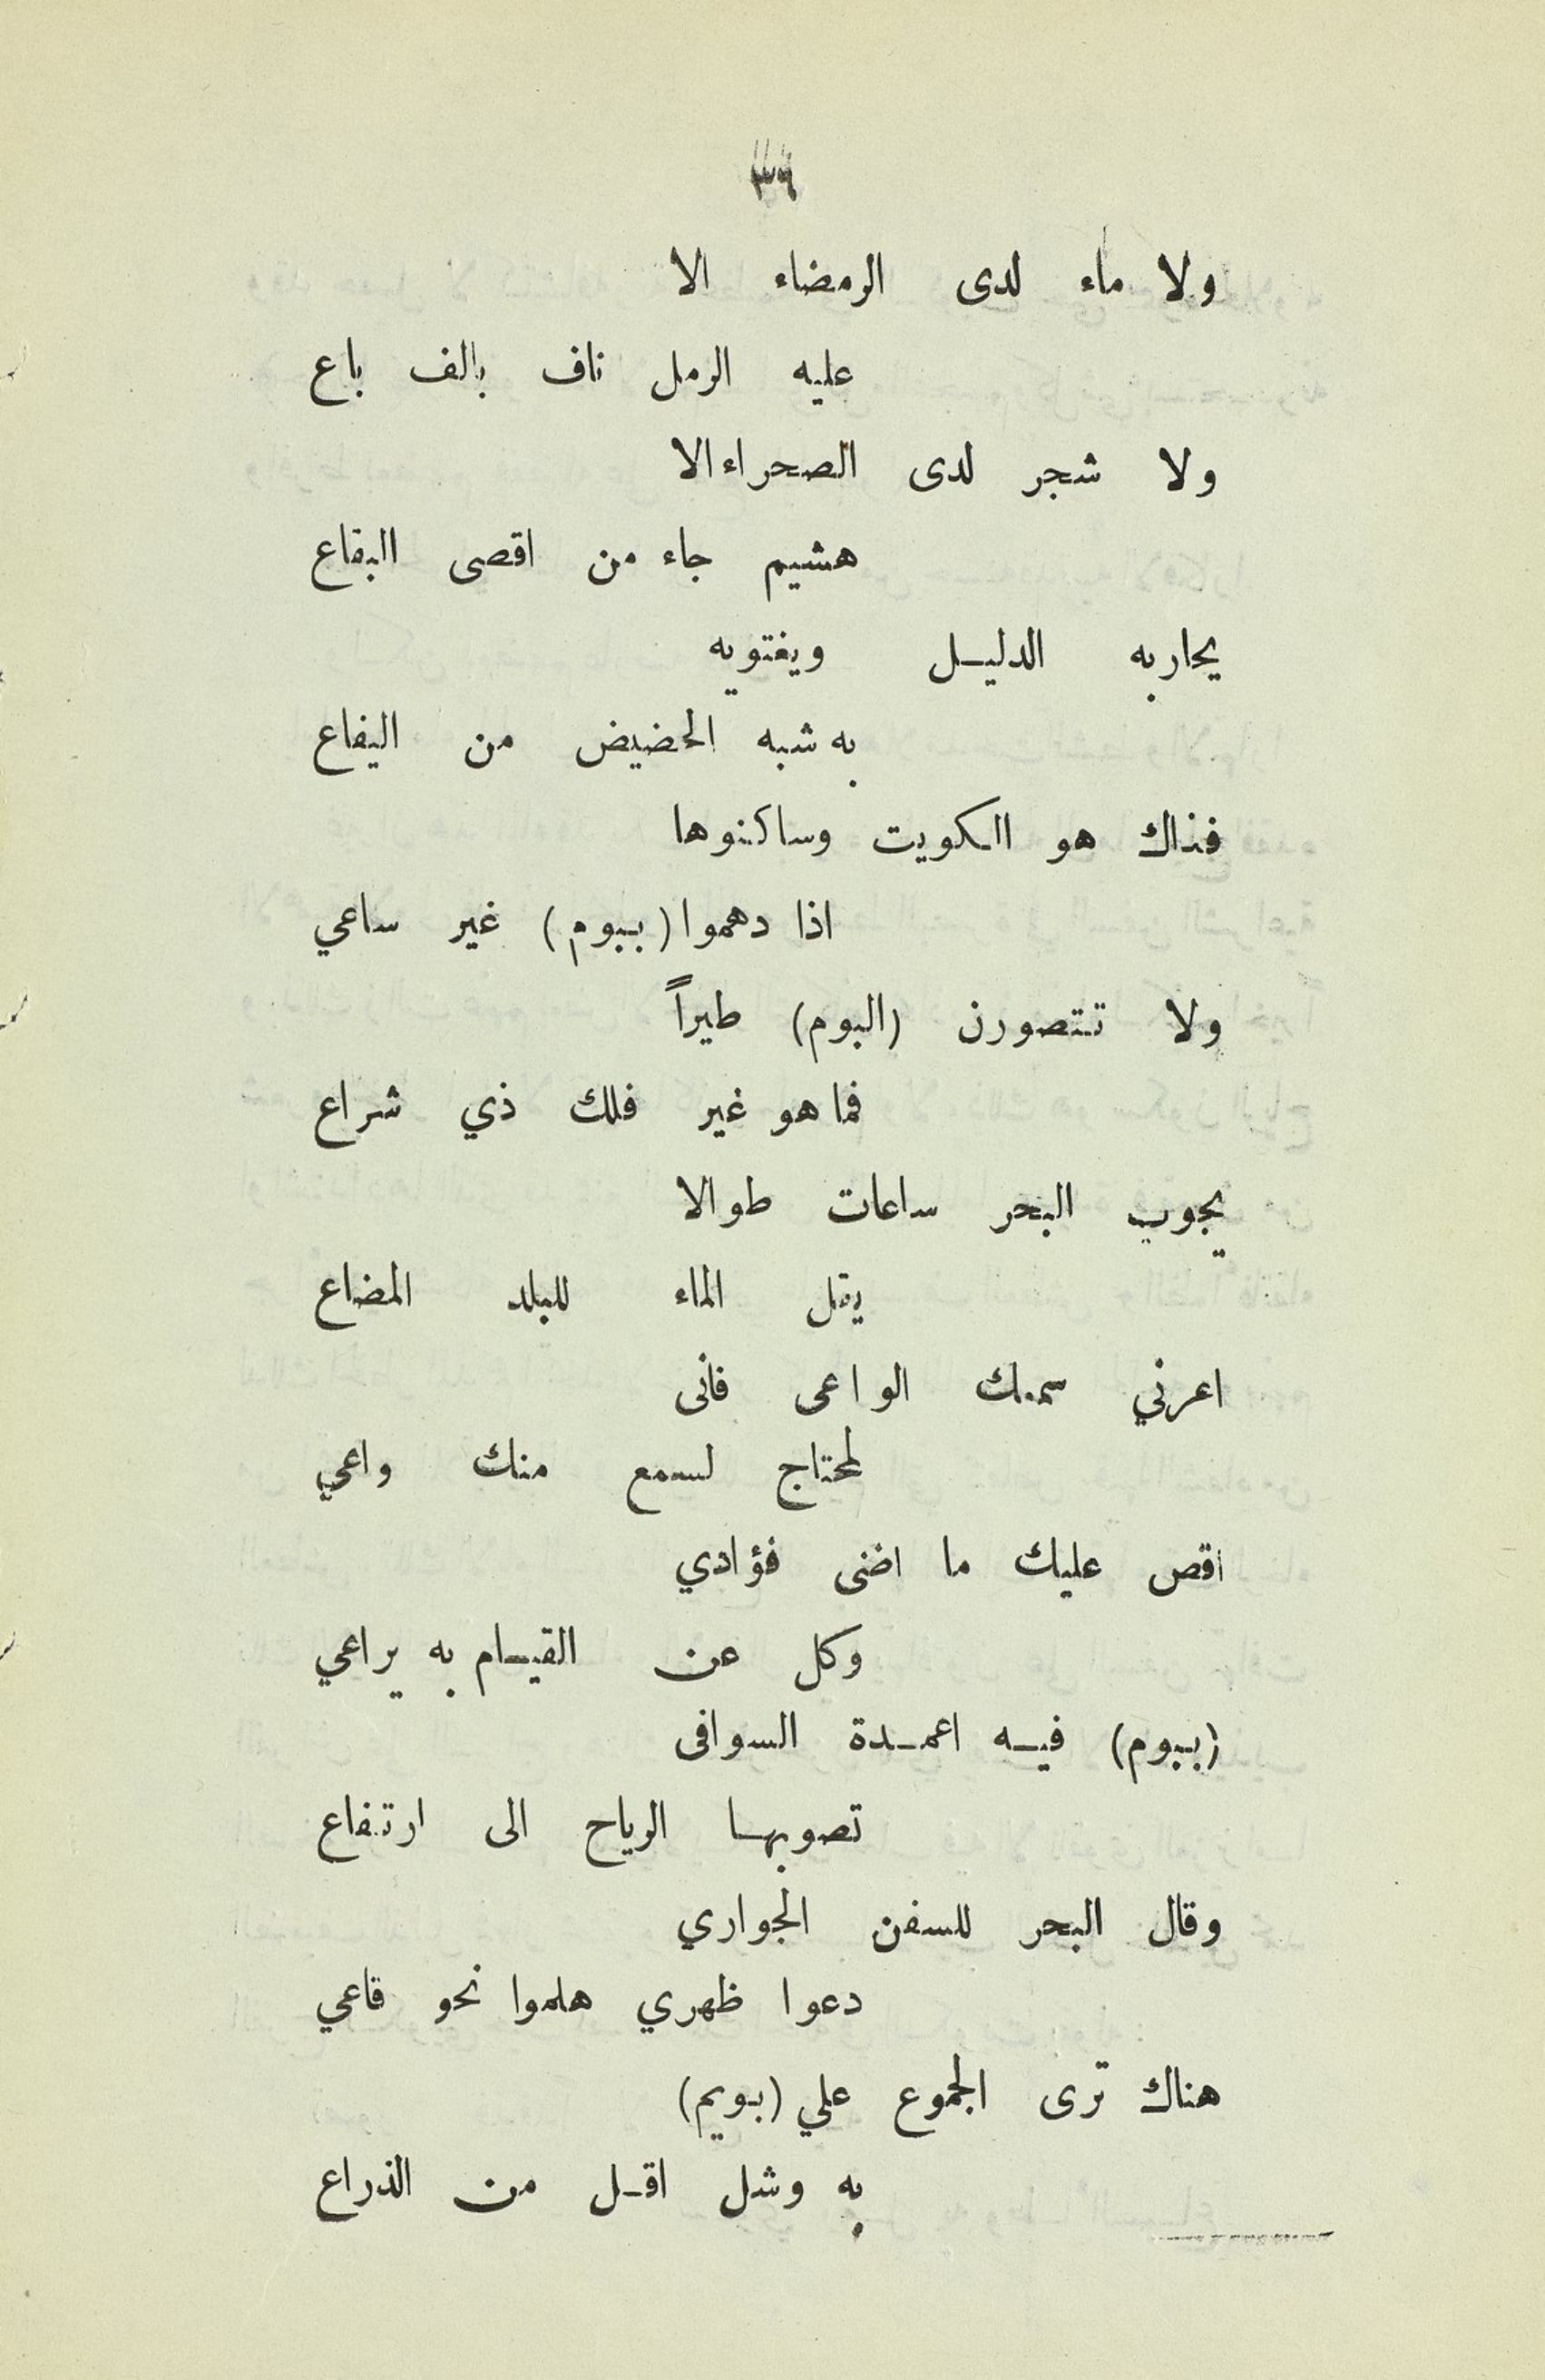 ٣٦
ولا ماء لدى الرمضاء الا
عليه الرمل ناف بالف باع
ولا شجر لدى الصحراء الا
هشيم جاء من اقصى البقاع
يحار به الدليــل ويغتويه
به شبه الحضيض من اليفاع
فذاك هو الكويت وساكنوها
اذا دهموا (ببوم) غير ساعي
ولا تتصورن (البوم) طيراً
فما هو غير فلك ذي شراع
يجوب البحر ساعات طوالا
يقل الماء للبلد المضاع
اعرني سمعك الواعى فانى
لمحتاج لسمع منك واعي
اقص عليك ما اضنى فؤادي
وكل عن القيــام به يراعي
(ببوم) فيــه اعمــدة السوافى
تصوبهــا الرياح الى ارتفاع
وقال البحر للسفن الجواري
دعوا ظهري هلموا نحو قاعي
هناك ترى الجموع علي (بويم)
به وشل اقــل من الذراع